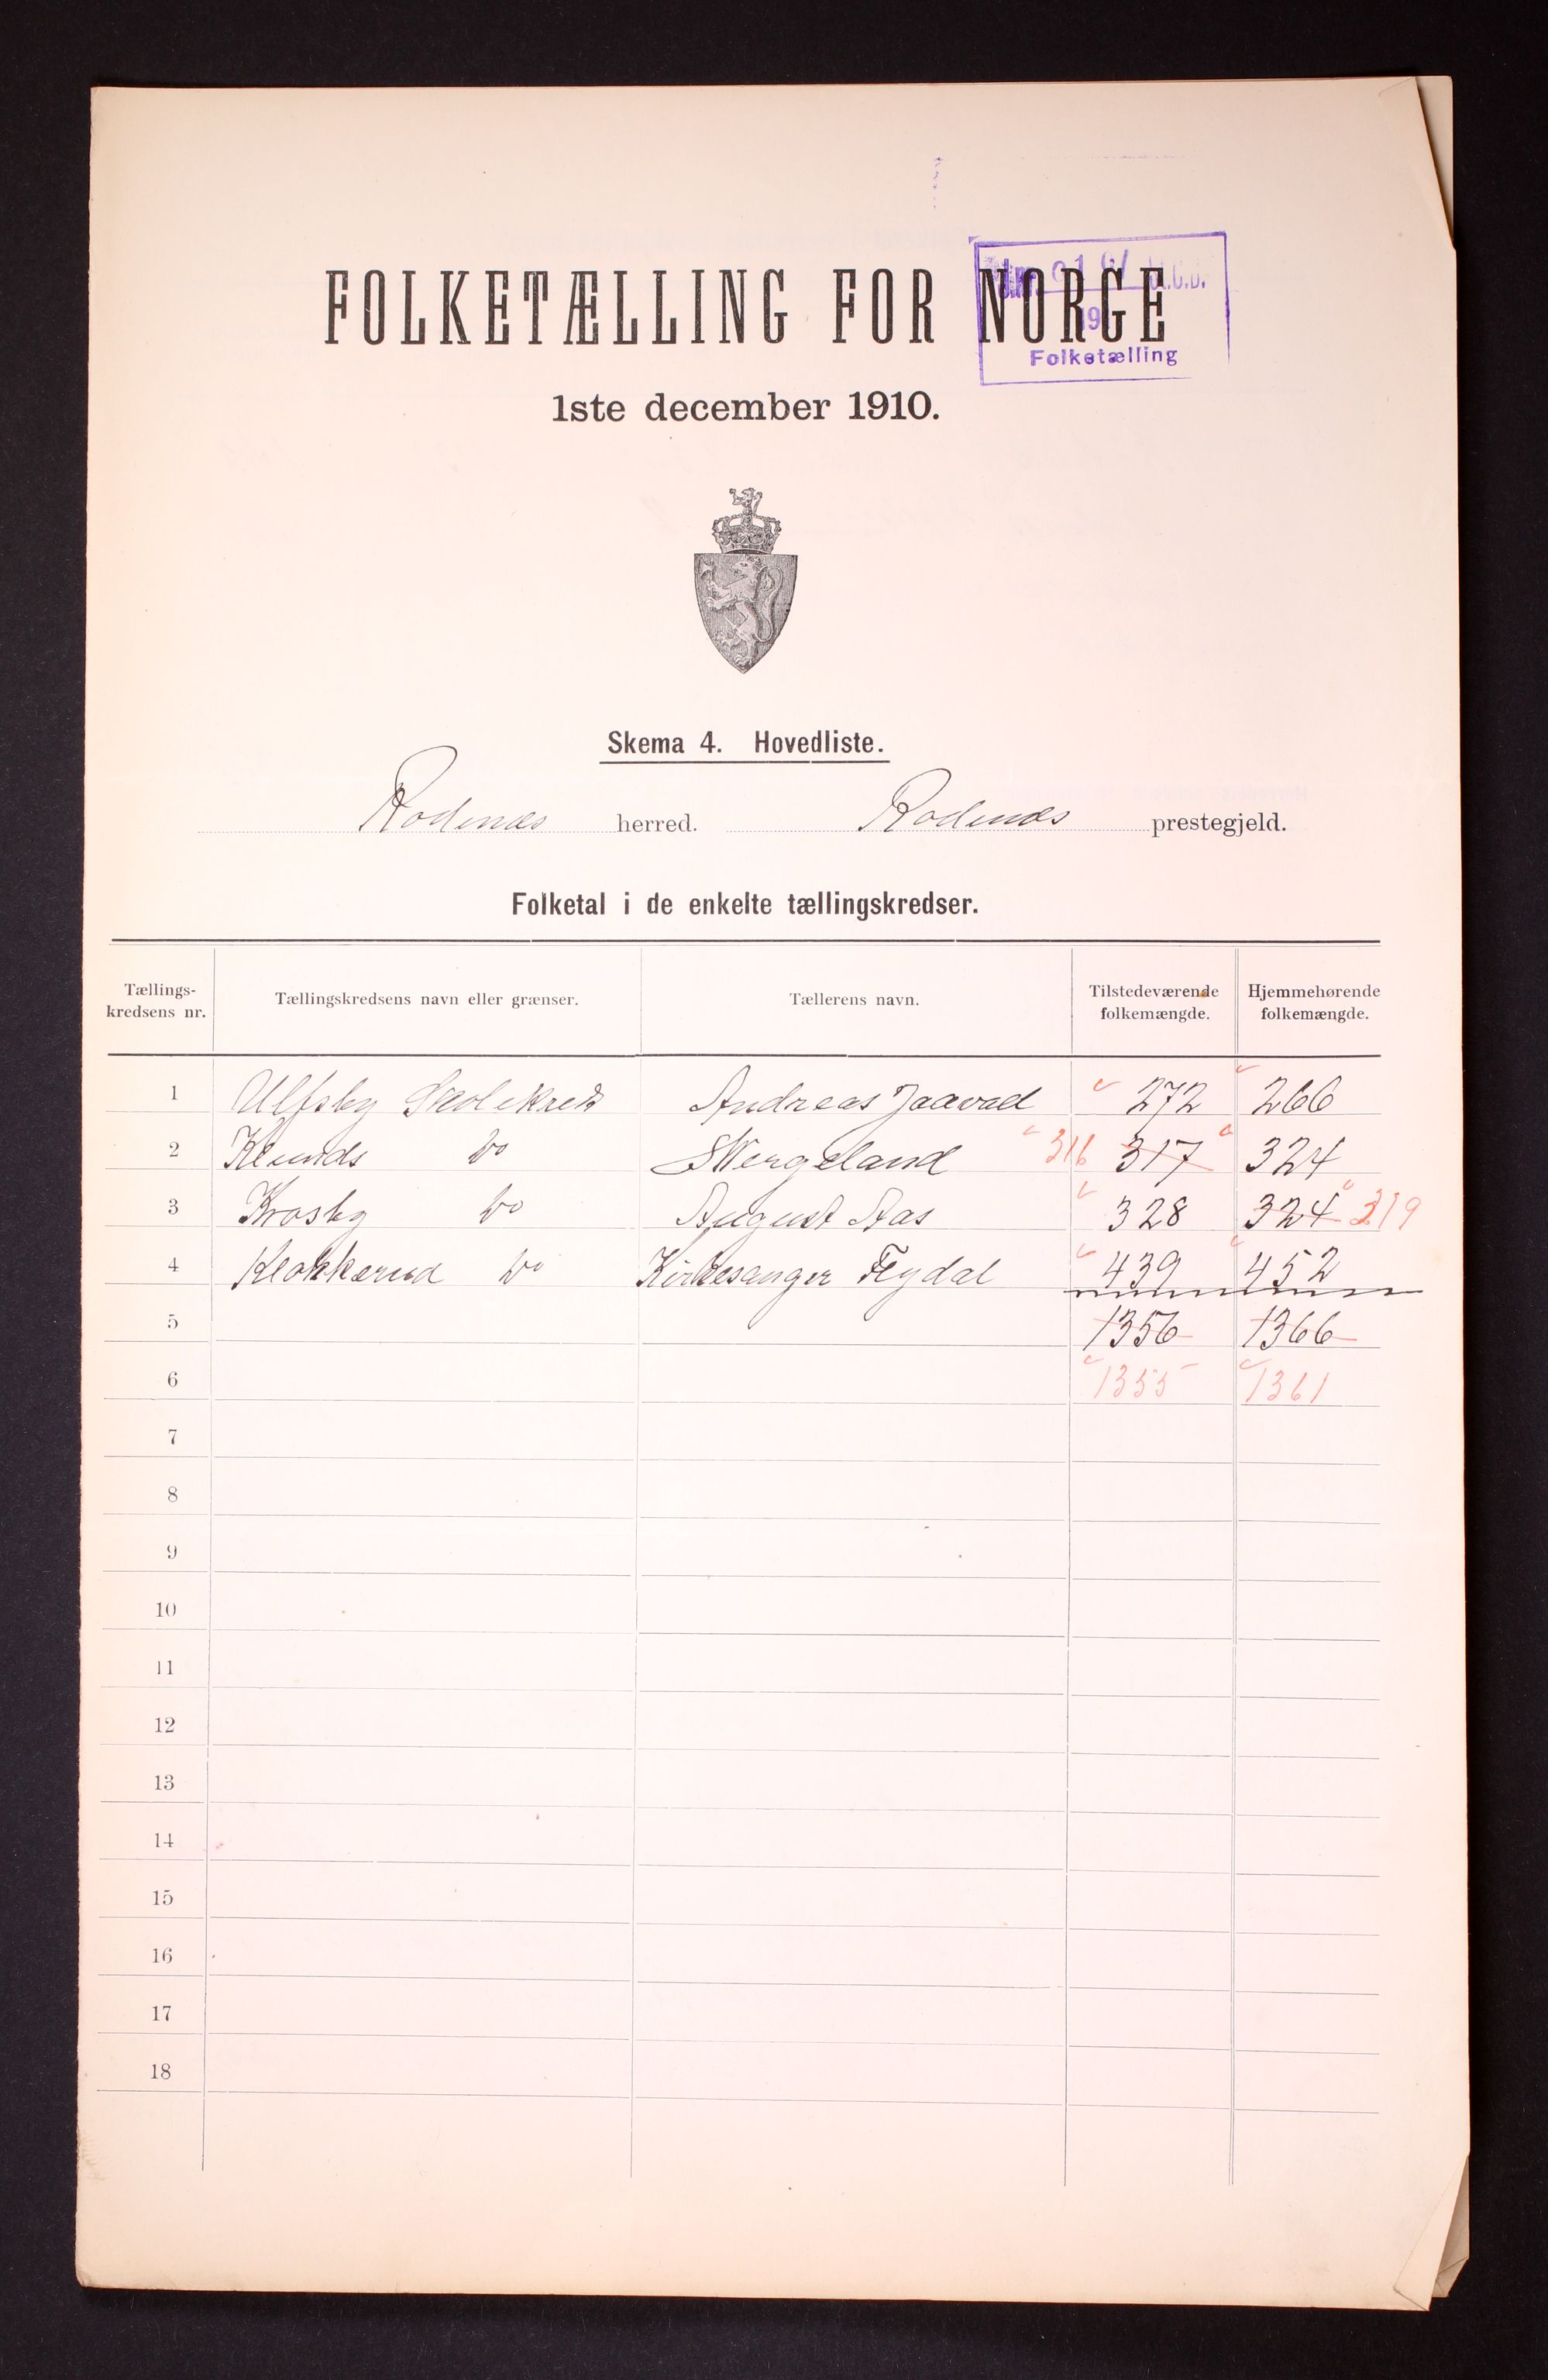 FOLKETÆLLING FOR NORGE
Folketælling
1ste december 1910.
Skema 4. Hovedliste.
Rødenæs herred. Rødenæs prestegjeld.
Folketal i de enkelte tællingskredser.
Tællings-kredsens nr. Tællingskredsens navn eller grænser. Tællerens navn. Tilstedeværende folkemængde. Hjemmehørende folkemængde.
1 Ulfsby Skolekreds Andreas Jaavad 272 266
2 Klunds Do Wergeland 316 317 324
3 Krosby Do August Aas 328 324 319
4 Klokkerud Do Kirkesanger Flydal 439 452
5 1356 1366
6 1355 1361
7
8
9
10
11
12
13
14
15
16
17
18